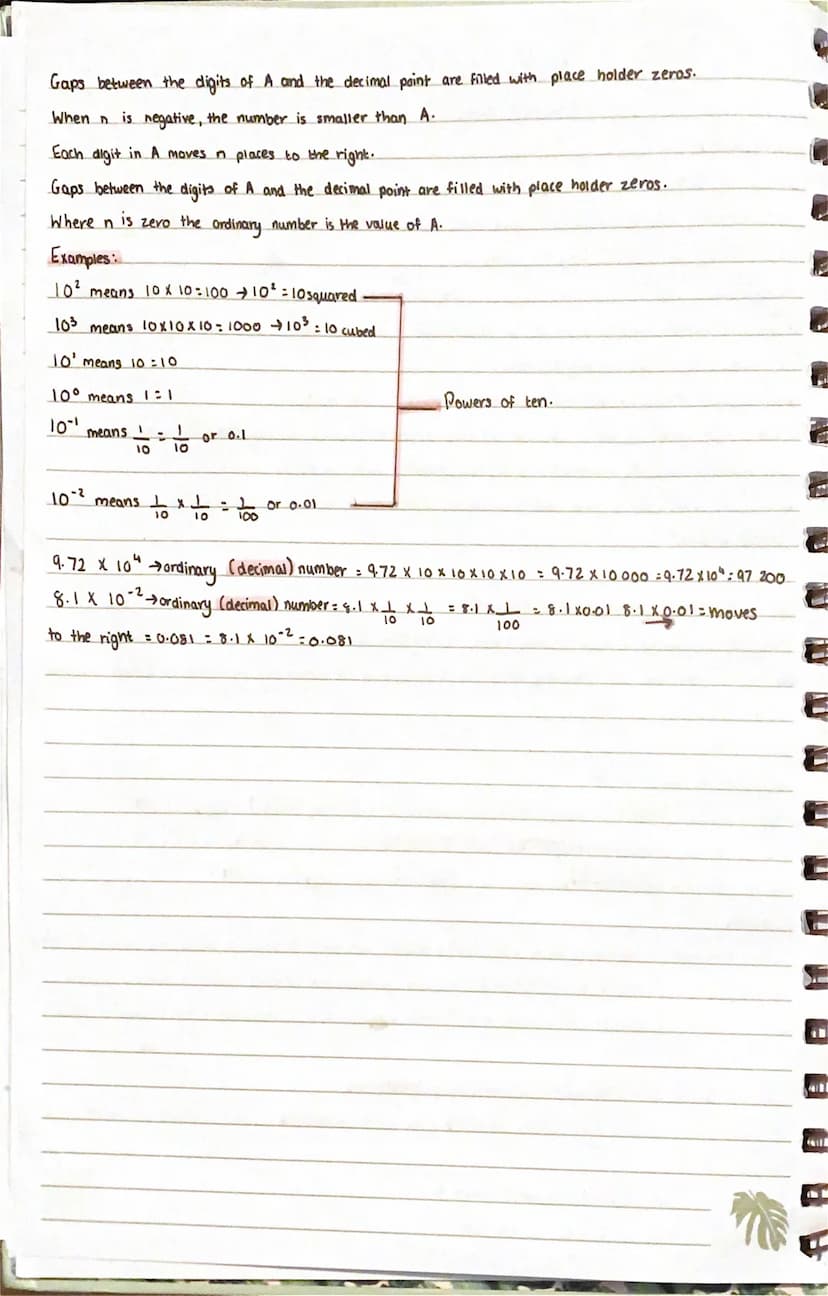 Gaps between the digits of A and the decimal point are filled with place holder zeros.
When n is negative, the number is smaller than A.
Each digit in A moves n places to the right.
Gaps between the digits of A and the decimal point are filled with place holder zeros.
Where n is zero the ordinary number is the value of A.
Examples:
10² means 10 x 10 = 100 → 10² = 10 squared
10³ means 10x10x10 = 1000 → 10³ = 10 cubed
10¹ means 10 = 10
10⁰ means 1 = 1
Powers of ten.
10⁻¹ means 1/10 = 1/10 or 0.1
10⁻² means 1/10 x 1/10 = 1/100 or 0.01
9.72 x 10⁴ → ordinary (decimal) number = 9.72 x 10 x 10 x 10 x 10 = 9.72 x 10 000 = 9.72 x 10⁴ = 97 200
8.1 x 10⁻² → ordinary (decimal) number = 8.1 x 1/10 x 1/10 = 8.1 x 1/100 = 8.1 x 0.01 8.1 x 0.01 = moves
to the right = 0.081 = 8.1 x 10⁻² = 0.081